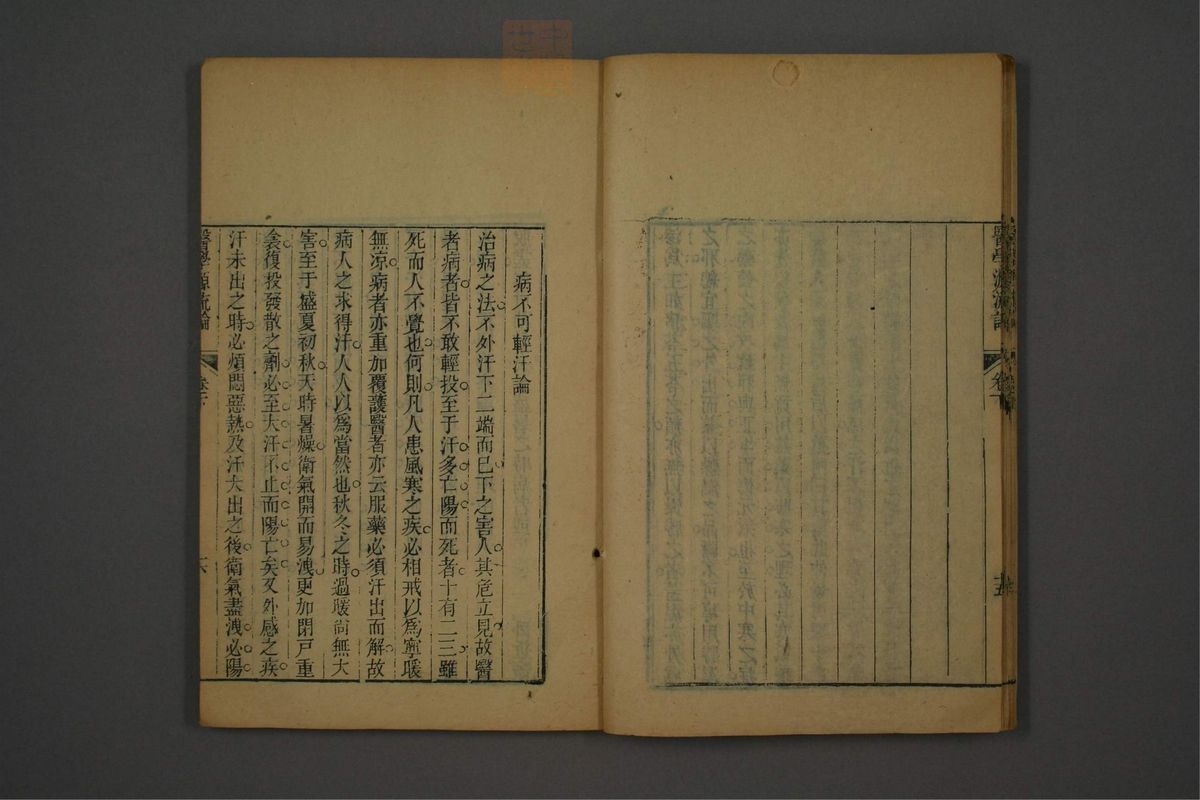 病不可輕汗論
治病之法不外汗下二端而已下之害人其危立見故醫
者病者皆不敢輕投至于汗多亡陽而死者十有二三雖
死而人不覺也何則凡人患風寒之疾必相戒以爲寧暖
無凉病者亦重加覆護醫者亦云服藥必須汗出而解故
病人之求得汗人人以爲當然也秋冬之時過暖尚無大
害至于盛夏初秋天時暑燥衛氣開而易洩更加閉戶重
衾復投發散之劑必至大汗不止而陽亡矣又外感之疾
汗未出之時必煩悶惡熱及汗大出之後衛氣盡洩必陽
醫學源流論
卷下
六
醫學源流論
五